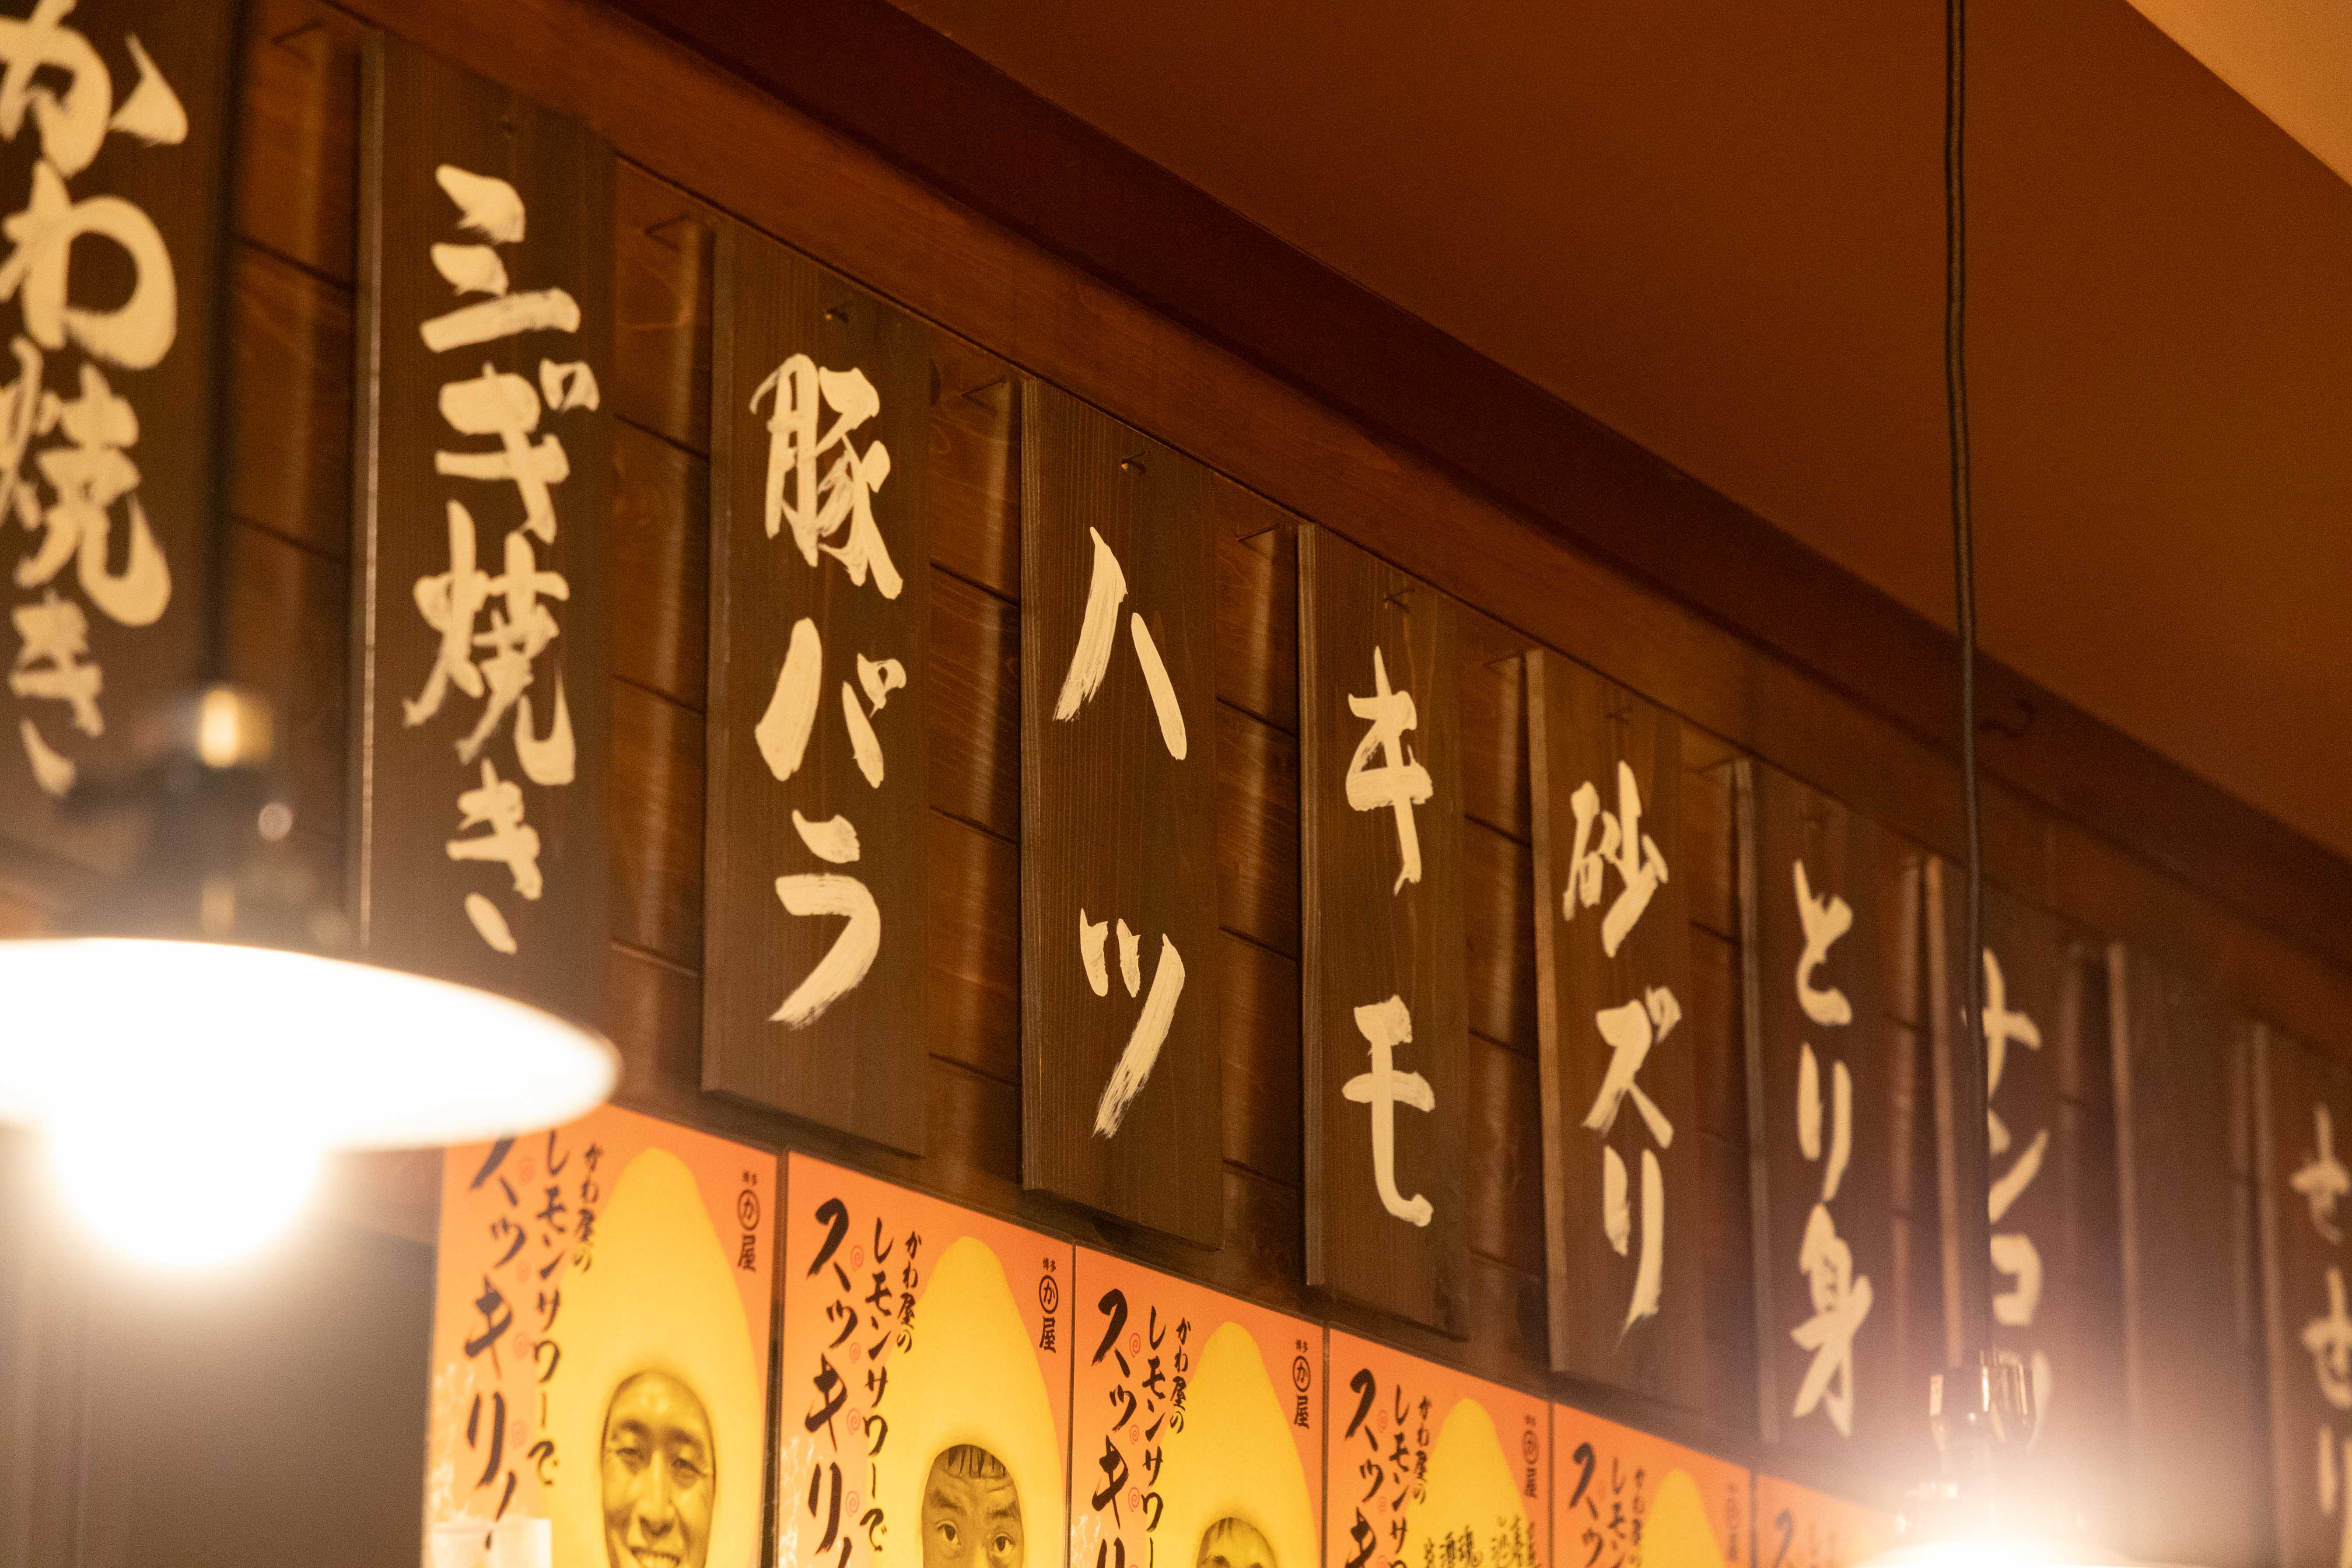 かわ焼き
ミギ焼き
豚バラ
ハツ
キモ
砂ズリ
とり身
ナンコツ
かわ屋の
レモンサワーで
スッキリ！
博多
か屋
かわ屋の
レモンサワーで
スッキリ！
博多
か屋
かわ屋の
レモンサワー
スッキリ
博多
か屋
かわ屋の
レモンサ
スッキ
かわ屋の
レモン
スッ